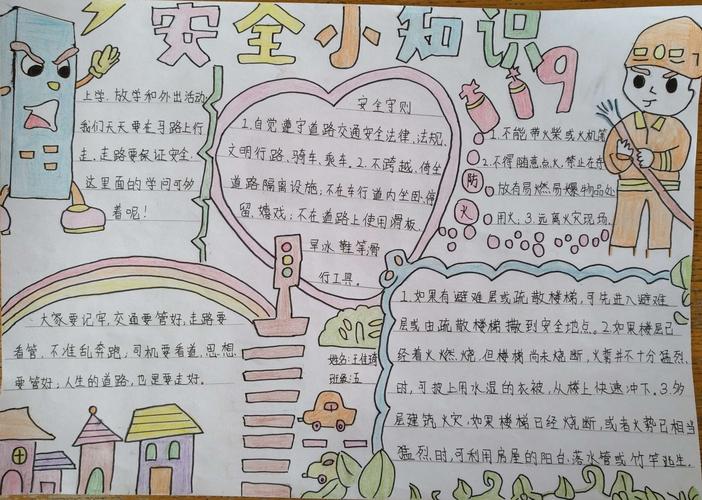 安全小知识
上学、放学和外出活动,
我们天天要在马路上行
走,走路要保证安全,
这里面的学问可多
着呢!
安全守则
1.自觉遵守道路交通安全法律、法规、
文明行路、骑车、乘车。2.不跨越、倚坐
道路隔离设施;不在车行道内坐卧、停
留、嬉戏;不在道路上使用滑板、
旱冰鞋等滑
行工具。
119
防火
1.不能带火柴或火机等
2.不得随意点火,禁止在存
放有易燃易爆物品处
用火;3.远离火灾现场。
大家要记牢,交通要管好,走路要
看管,不准乱奔跑,司机要看道,思想
要管好;人生的道路,也是要走好。
姓名:王佳琦
班级:五
1.如果有避难层或疏散楼梯,可先进入避难
层或由疏散楼梯撤到安全地点。2.如果楼层已
经着火燃烧,但楼梯尚未烧断,火势并不十分猛烈
时,可披上用水湿的衣被,从楼上快速冲下。3.多
层建筑火灾,如果楼梯已经烧断,或者火势已相当
猛烈时,可利用房屋的阳台、落水管或竹竿逃生。